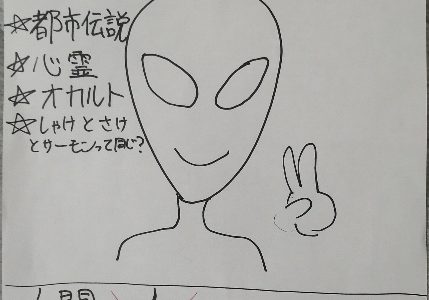 ☆都市伝説
☆心霊
☆オカルト
☆しゃけとさけ
とサーモンって同じ?